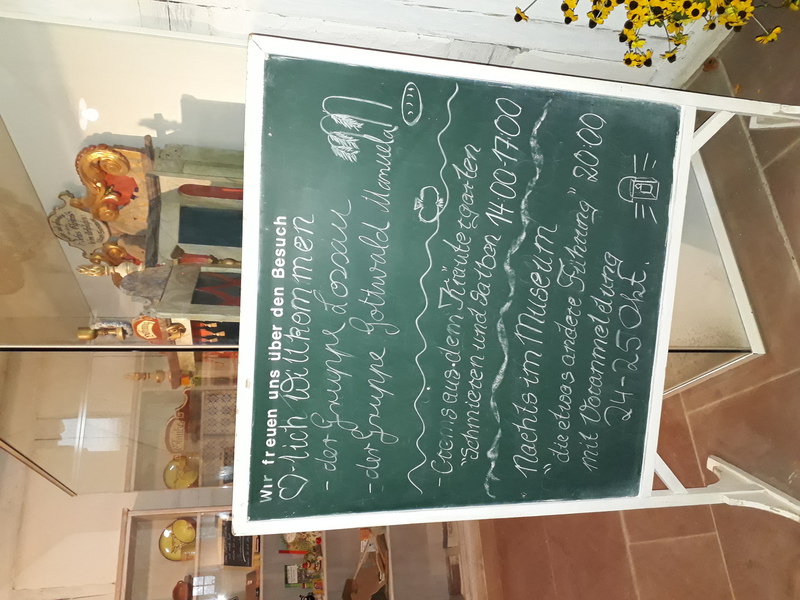 Wir freuen uns über den Besuch
♡lich Willkommen
- der Gruppe Lossau
- der Gruppe Gottwald Manuela
- Crems aus dem Kräutergarten
"Schmieren und Salben 14 00-17 00
Nachts im Museum
"die etwas andere Führung" 20:00
mit Voranmeldung
24-25 Okt.